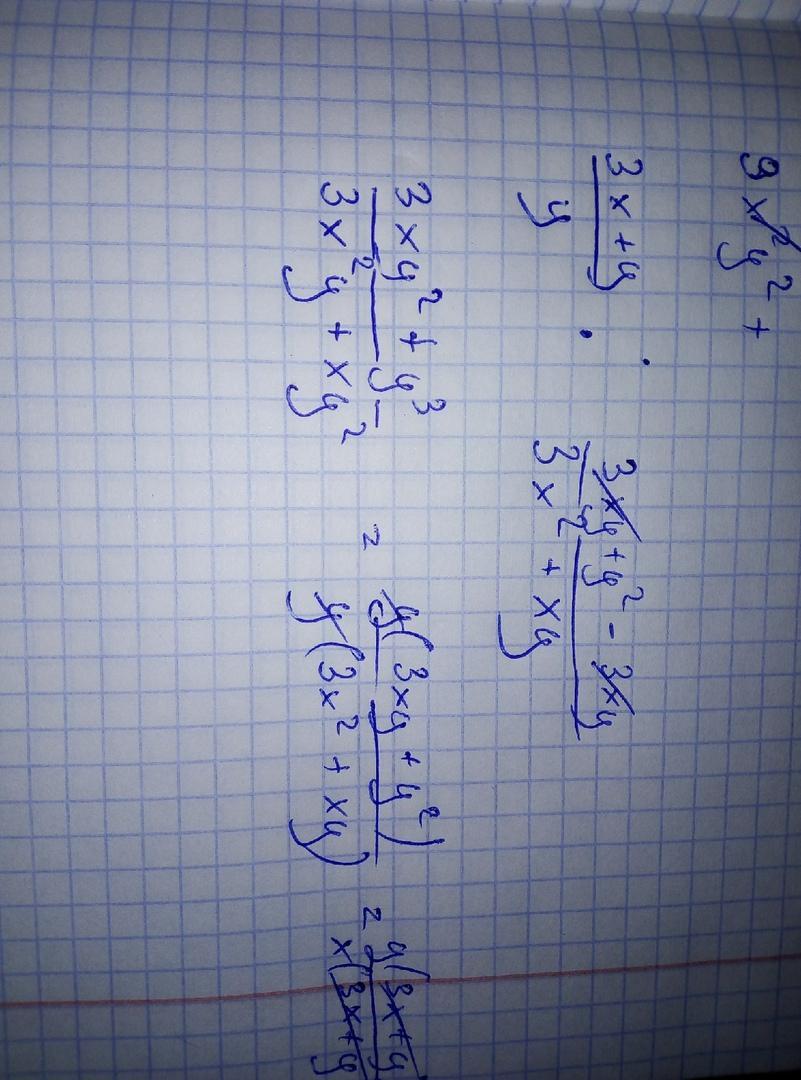 9x²y² +
3x+y / y · (3xy + y² - 3xy) / (3x² + xy)
(3xy² + y³) / (3x²y + xy²) = y(3xy + y²) / y(3x² + xy) = y(3x+y / x(3x+y